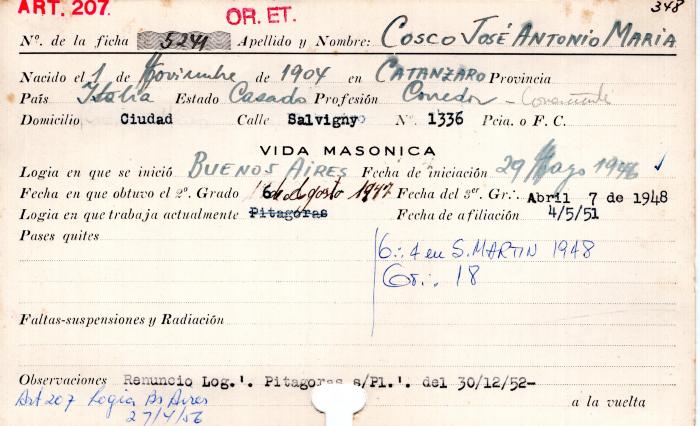 ART. 207.
OR. ET.
348
Nº. de la ficha 5241 Apellido y Nombre: COSCO JOSÉ ANTONIO MARIA
Nacido el 1 de Noviembre de 1904 en CATANZARO Provincia
País Italia Estado Casado Profesión Corredor -
Domicilio Ciudad Calle Salvigny Nº. 1336 Pcia. o F. C.
VIDA MASONICA
Logia en que se inició BUENOS AIRES Fecha de iniciación 29 Mayo 1946
Fecha en que obtuvo el 2º. Grado 16 de Agosto 1947 Fecha del 3er. Gr∴. Abril 7 de 1948
Logia en que trabaja actualmente Pitagoras Fecha de afiliación 4/5/51
Pases quites
G∴ 4 en S. MARTIN 1948
Gr∴ 18
Faltas-suspensiones y Radiación
Observaciones Renuncio Log.'. Pitagoras s/Pl.'. del 30/12/52-
Art 207 Logia Bs Aires
27/4/56
a la vuelta